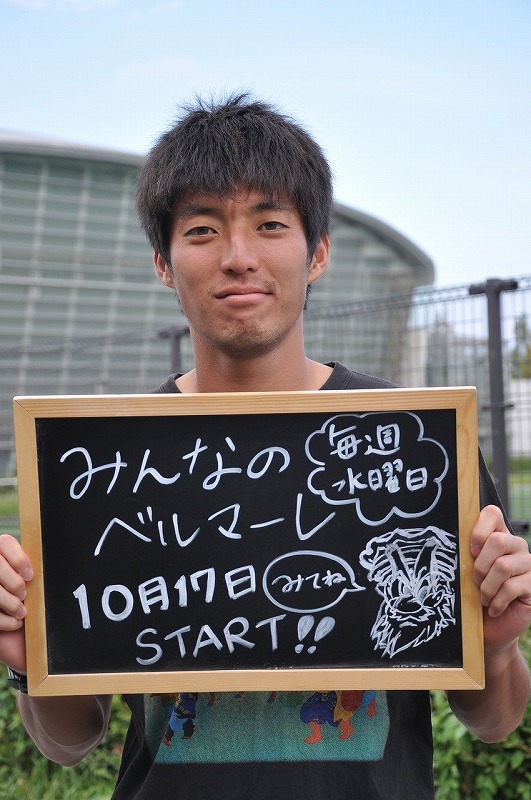 みんなの
ベルマーレ
毎週
水曜日
10月17日
みてね
START!!